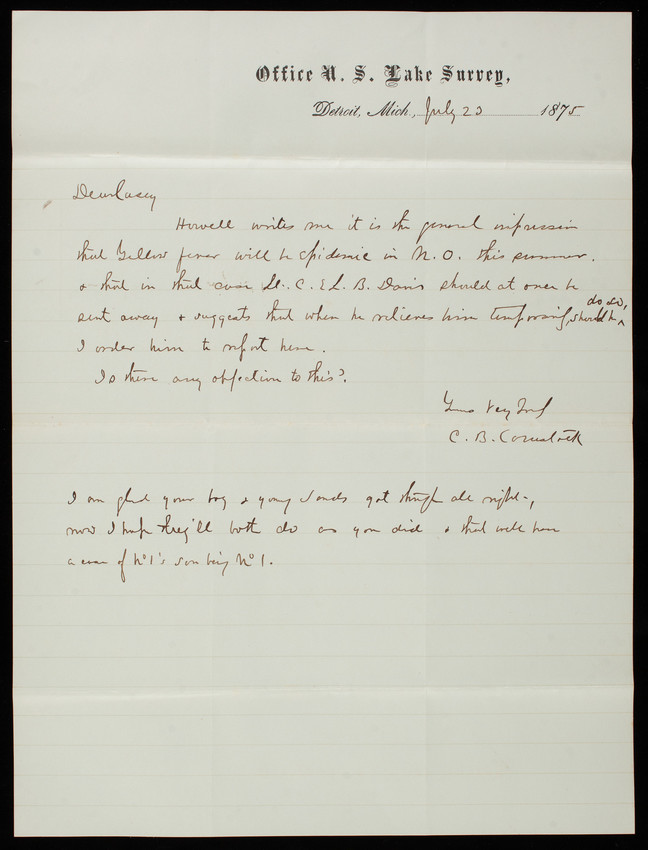 Office U. S. Lake Survey,
Detroit, Mich., July 23 1875
Dear Casey
Howell writes me it is the general impression
that Yellow fever will be epidemic in N. O. this summer.
& that in that case Lt. C. E L. B. Davis should at once be
sent away & suggests that when he relieves him temporarily, should he do so,
I order him to report here.
Is there any objection to this?
Yours Very Truly
C. B. Comstock
I am glad your boy & young Sands got through all right,
now I hope they'll both do as you did & that will be
a case of No 1's son being No 1.